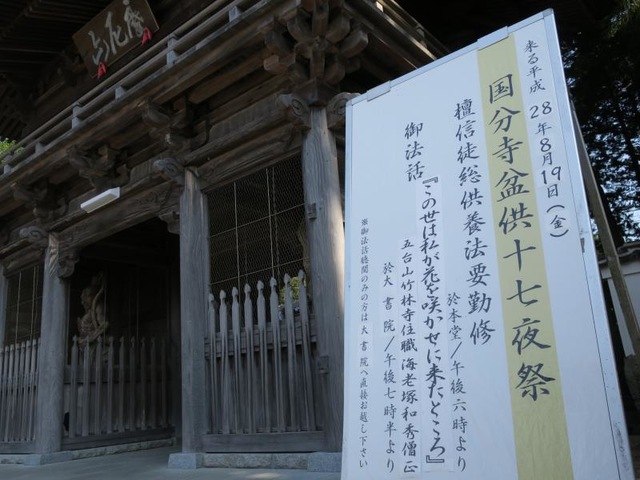 来る平成28年8月19日(金)
国分寺盆供十七夜祭
檀信徒総供養法要勤修
於本堂/午後六時より
御法話『この世は私が花を咲かせに来たところ』
五台山竹林寺住職 海老塚和秀僧正
於大書院/午後七時半より
※御法話聴聞のみの方は大書院へ直接お越し下さい